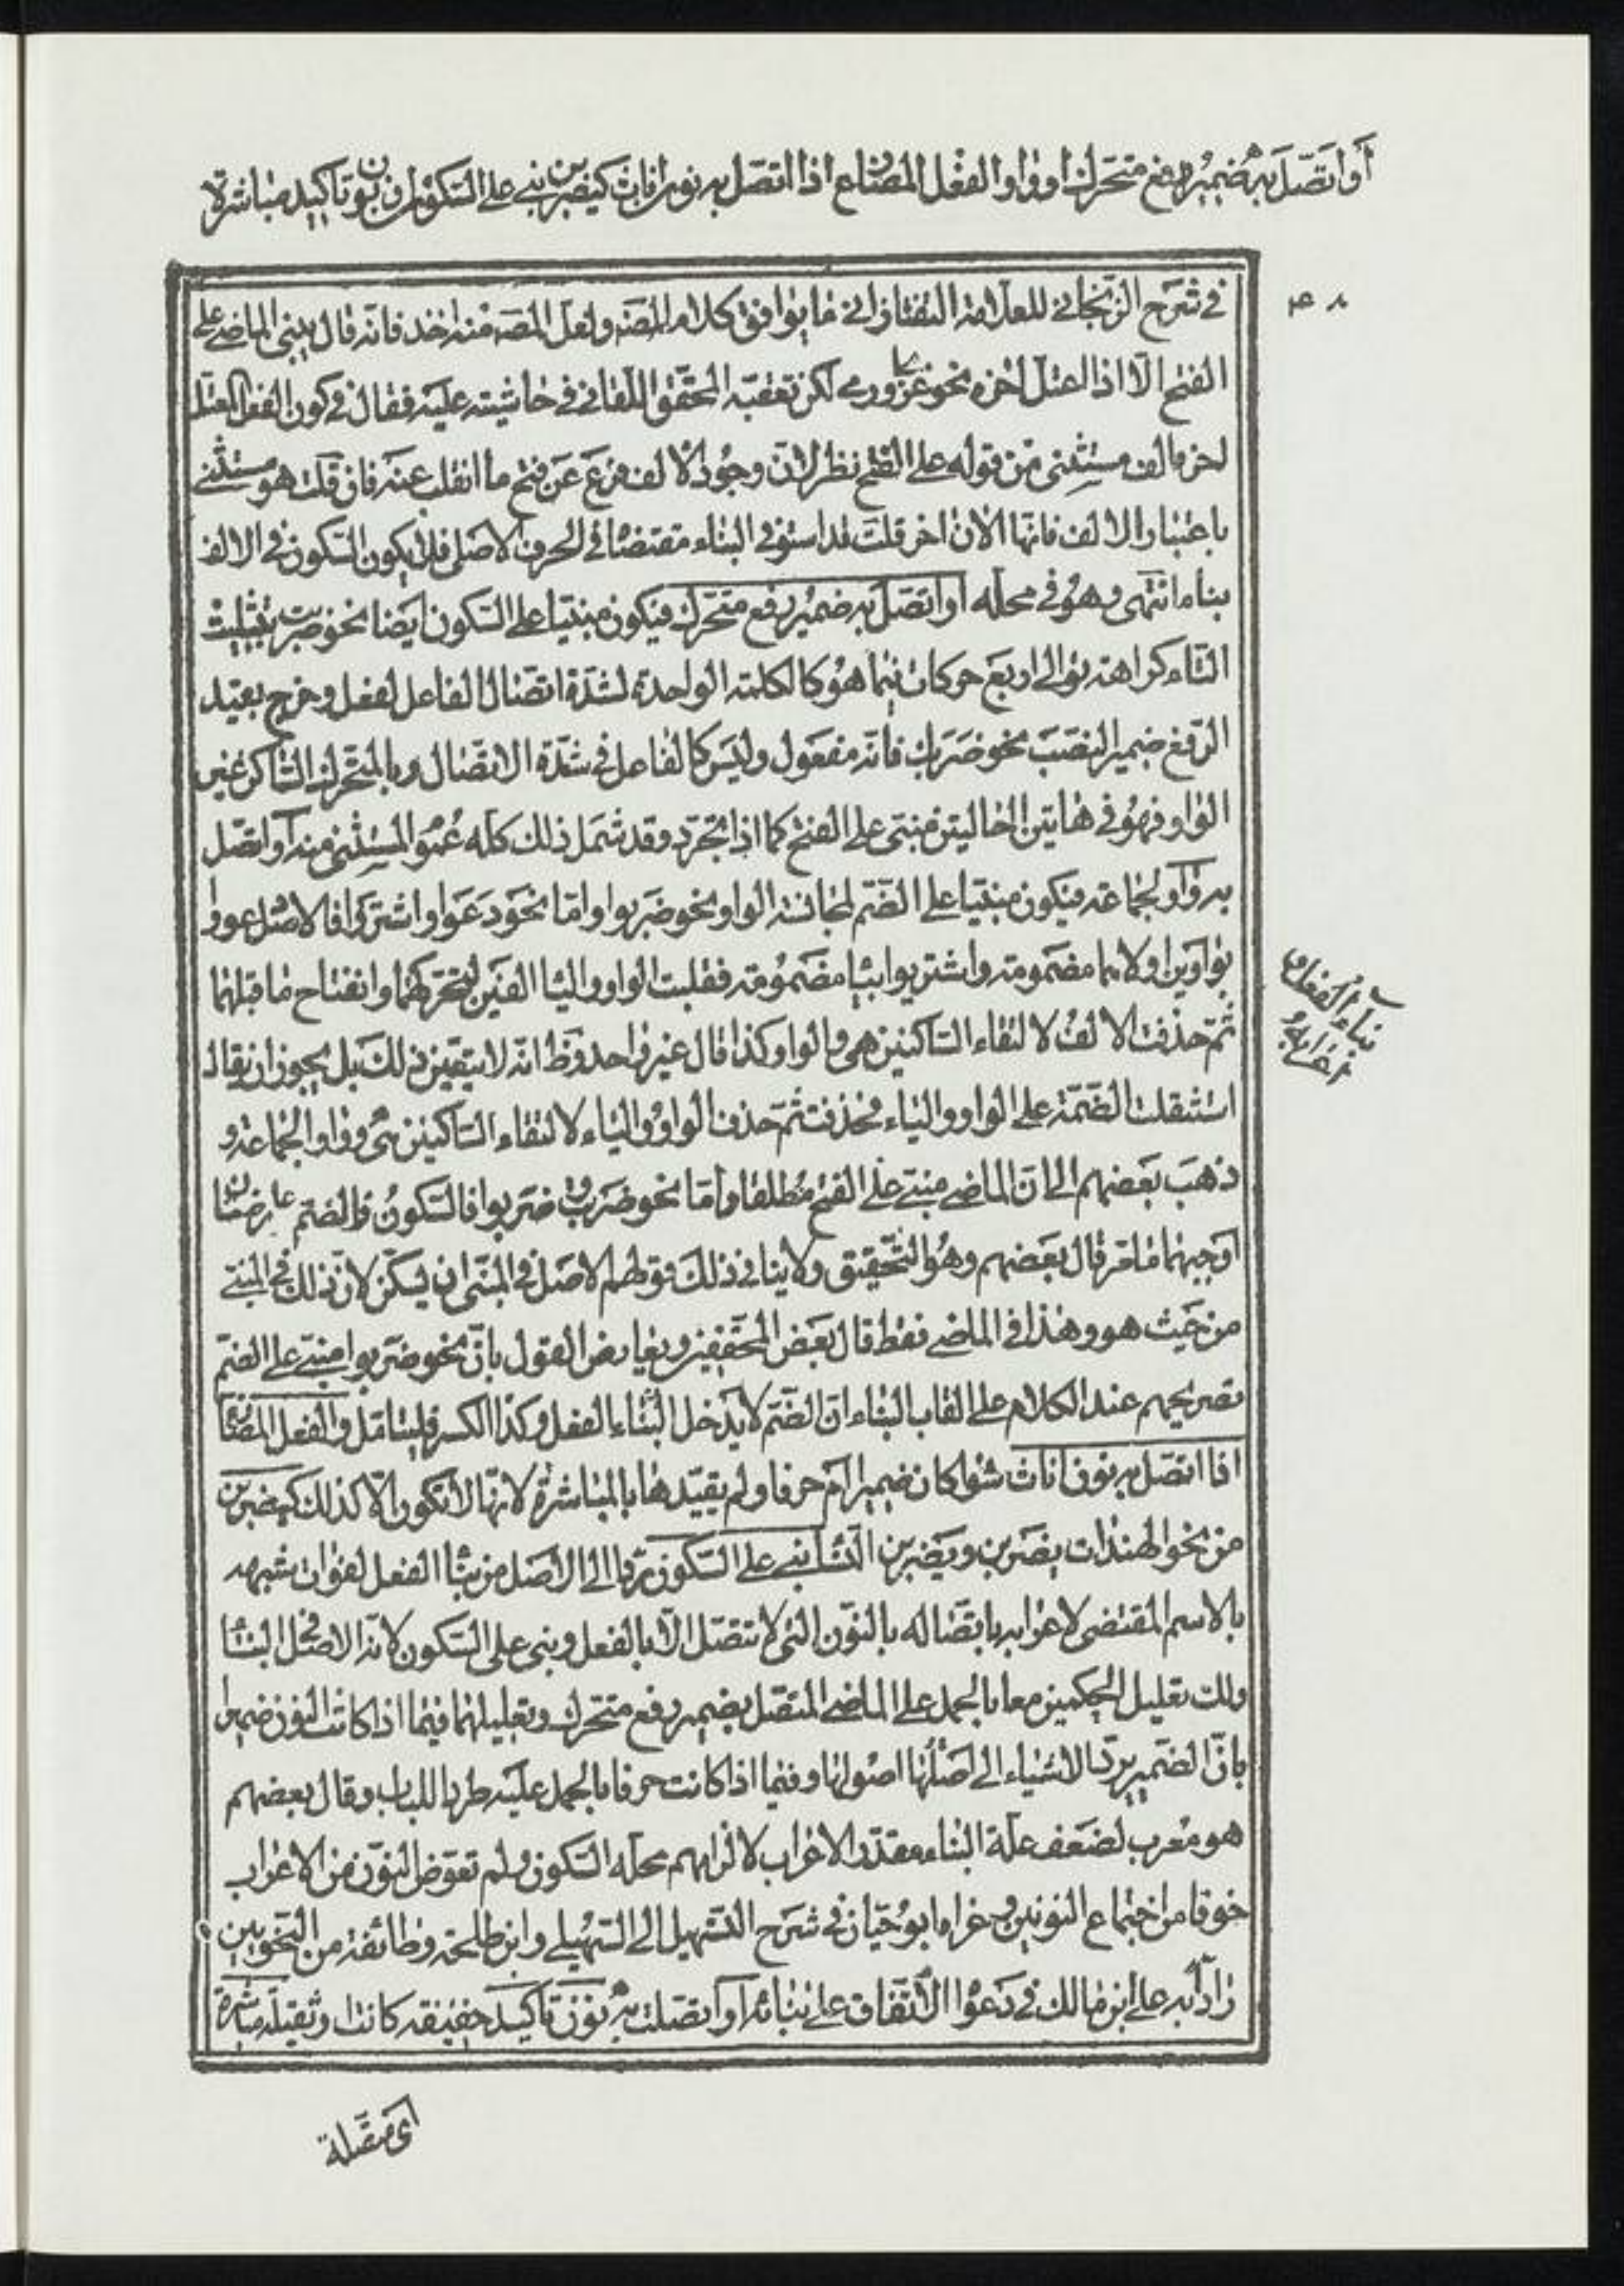 أو اتصل به ضمير رفع متحرك او واو والفعل المضارع اذا اتصل به نون اناث كيضربن بنى على السكون او نون تاكيد مباشرة
٤٨
فى شرح الزنجانى للعلامة التفتازانى ما يوافق كلام المصنه ولعل المصه منه اخذ فانه قال يبنى الماضى على
الفتح الا اذا اعتل اخره نحو غزا ورمى لكن تعقبه المحقق اللقانى فى حاشيته عليه فقال فى كون الفعل المعتل
اخره الف مستثنى من قوله على الفتح نظر لان وجود الالف فرع عن فتح ما انقلب عنه فان قلت هو مستثنى
باعتبار الالف فانها الان اخر قلت قد استوفى البناء مقتضائى الحرف الاصلى فلا يكون السكون فى الالف
بناء انتهى وهو فى محله او اتصل به ضمير رفع متحرك فيكون مبنيا على السكون ايضا نحو ضربت بتثليث
التاء كراهة توالى اربع حركات فيما هو كالكلمة الواحدة لشدة اتصال الفاعل لفعل وخرج بقيد
الرفع ضمير النصب نحو ضربك فانه مفعول وليس كالفاعل فى شدة الاتصال وبالمتحرك الساكن غير
الواو فهو فى هاتين الحاليتن مبنى على الفتح كما اذا تجرد وقد شمل ذلك كله عموم المستثنى منه او اتصل
به واو الجماعة فيكون مبنيا على الضم لمجانسة الواو نحو ضربوا واما نحو دعوا واشتروا فالاصل دعووا
بواوين اولاهما مضمومة واشتريوا بياء مضمومة فقلبت الواو والياء الفين لتحركهما وانفتاح ما قبلهما
ثم حذفت الالف لالتقاء الساكنين هى والواو وكذا قال غير واحد وظ انه لا يتعين ذلك بل يجوز ان يقال
استثقلت الضمة على الواو والياء فحذفت ثم حذف الواو والياء لالتقاء الساكنين هى وواو الجماعة و
ذهب بعضهم الى ان الماضى مبنى على الفتح مطلقا واما نحو ضربت وضربوا فالسكون والضم عارضان
اوجبهما ما مر قال بعضهم وهو التحقيق ولا ينافى ذلك قولهم الاصل فى المبنى ان يسكن لان ذلك فى المبنى
من حيث هو وهذا فى الماضى فقط قال بعض المحققين ويعارض القول بان نحو ضربوا مبنى على الضم
تصريحهم عند الكلام على القاب البناء ان الضم لا يدخل البناء الفعل وكذا الكسر فليتامل والفعل المضارع
اذا اتصل به نون اناث سواء كان ضميرا ام حرفا ولم يقيدها بالمباشرة لانها لا تكون الا كذلك كيضربن
من نحو الهندات يضربن ويضربن النساء بنى على السكون ردا الى الاصل من بناء الفعل لفوات شبهه
بالاسم المقتضى لاعرابه باتصاله بالنون التى لا تتصل الا بالفعل وبنى على السكون لانه الاصل فى البناء
ولك تعليل الحكمين معا بالحمل على الماضى المتصل بضمير رفع متحرك وتعليلهما فيما اذا كانت النون ضميرا
بان الضمير يرد الاشياء الى اصلها اصولها وفيما اذا كانت حرفا بالحمل عليه طردا للباب وقال بعضهم
هو معرب لضعف علة البناء مقدر الاعراب لالزامهم محله السكون ولم تعوض النون من الاعراب
خوفا من اجتماع النونين وعزاه ابو حيان فى شرح التسهيل الى السهيلى وابن طلحة وطائفة من النحويين
رادا به على ابن مالك فى دعوا الاتفاق على بنائه او اتصلت به نون تاكيد خفيفة كانت او ثقيلة مباشرة
بناء الفعل
اى متصلة